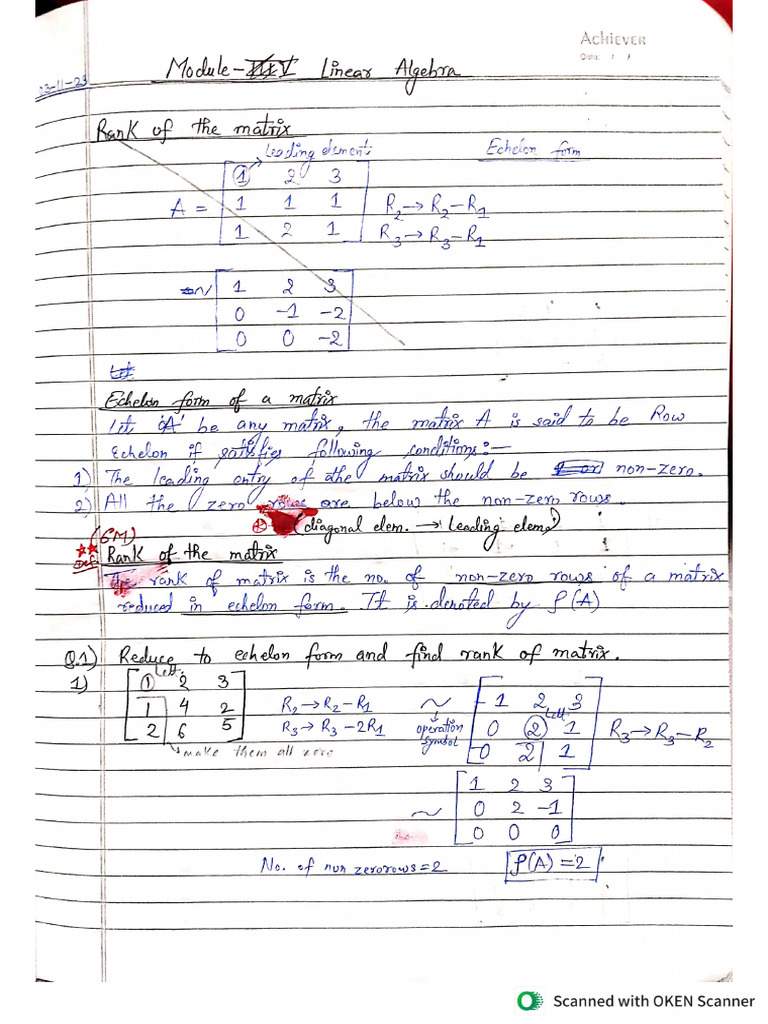 ACHIEVER
Date: / /
Module- V Linear Algebra
23-11-23
Rank of the matrix
Leading element Echelon form
A = [ 1 2 3
1 1 1 R2→R2-R1
1 2 1 ] R3→R3-R1
~ [ 1 2 3
0 -1 -2
0 0 -2 ]
Let
Echelon form of a matrix
let 'A' be any matrix, the matrix A is said to be Row
Echelon if satisfies following conditions:-
1) The leading entry of the matrix should be non-zero.
2) All the zero rows are below the non-zero rows.
(diagonal elem. → Leading elem)
(6M)
Def Rank of the matrix
The rank of matrix is the no. of non-zero rows of a matrix
reduced in echelon form. It is denoted by ρ(A)
Q.1) Reduce to echelon form and find rank of matrix.
1) [ 1 2 3
1 4 2
2 6 5 ]
R2→R2-R1
R3→R3-2R1
make them all zero
~ operation symbol
[ 1 2 3
0 2 1
0 2 1 ] R3→R3-R2
~ [ 1 2 3
0 2 -1
0 0 0 ]
No. of non zero rows=2 ρ(A) =2
Scanned with OKEN Scanner